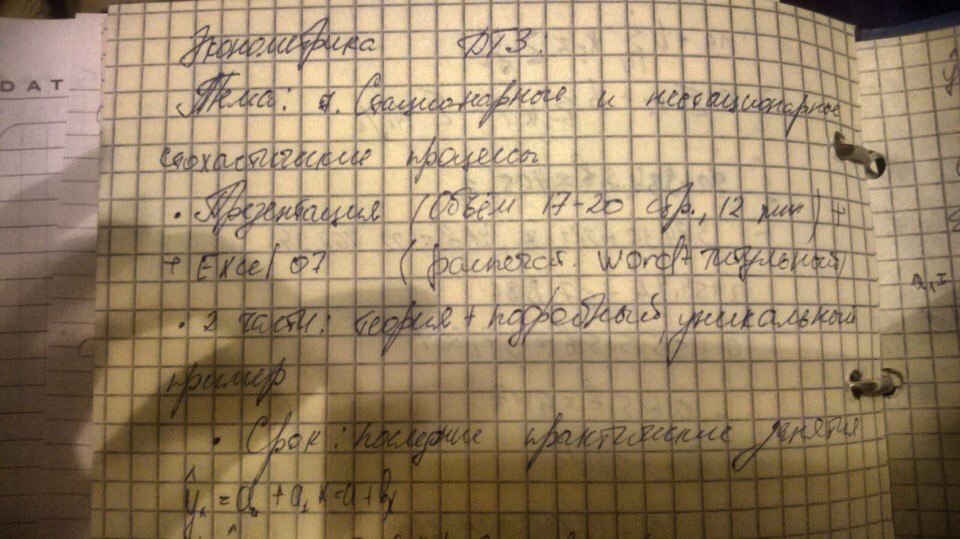 DAT
Эконометрика ДТЗ:
Тема: 7. Стационарные и нестационарные
стохастические процессы
• Презентация (Объём 17-20 стр., 12 мин) +
+ Excel 07 (распечат. Word + титульный)
• 2 части: теория + подробный, уникальный
пример
• Срок: последние практические занятия
ŷₓ = a₀ + a₁x = a + bx